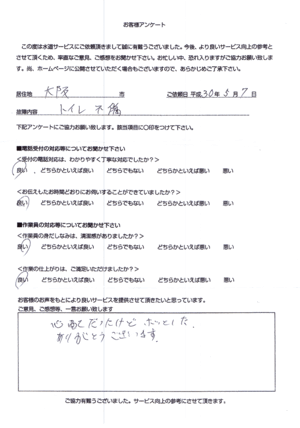 お客様アンケート
この度は水道サービスにご依頼頂きまして誠に有難うございました。今後、より良いサービス向上の参考と
させて頂くため、率直なご意見、ご感想をお聞かせ下さい。お忙しい中、恐れ入りますがご協力お願い致しま
す。尚、ホームページに公開させていただく場合もございますので、あらかじめご了承下さい。
居住地 大阪 市 ご依頼日 平成 30 年 5 月 7 日
故障内容 トイレ不備
下記アンケートにご協力お願い致します。該当項目に〇印をつけて下さい。
■電話受付の対応等についてお聞かせ下さい
<受付の電話対応は、わかりやすく丁寧な対応でしたか?>
良い どちらかといえば良い どちらでもない どちらかといえば悪い 悪い
<お伝えしたお時間どおりにお伺いすることができていましたか?>
良い どちらかといえば良い どちらでもない どちらかといえば悪い 悪い
■作業員の対応等についてお聞かせ下さい
<作業員の身だしなみは、清潔感がありましたか?>
良い どちらかといえば良い どちらでもない どちらかといえば悪い 悪い
<作業の仕上がりは、ご満足いただけましたか?>
良い どちらかといえば良い どちらでもない どちらかといえば悪い 悪い
お客様のお声をもとにより良いサービスを提供させて頂きたいと思っています。
ご意見、ご感想等、一言お願い致します
心配だったけどホッとした。
ありがとうございます。
ご協力有難うございました。サービス向上の参考にさせて頂きます。